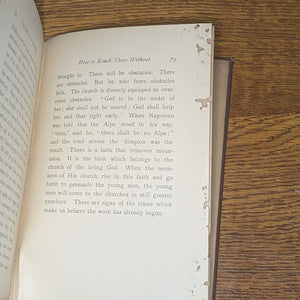 How to Reach Those Without. 79
brought it. There will be obstacles. There
are obstacles. But he who fears obstacles
fails. The church is divinely equipped to over-
come obstacles. "God is in the midst of
her; she shall not be moved: God shall help
her, and that right early." When Napoleon
was told that the Alps stood in his way,
"then," said he, "there shall be no Alps;"
and the road across the Simplon was the
result. There is a faith that removes moun-
tains. It is the faith which belongs to the
church of the living God. When the mem-
bers of His church rise in this faith and go
forth to persuade the young men, the young
men will come to the churches in still greater
numbers. There are signs of the times which
make us believe the work has already begun.